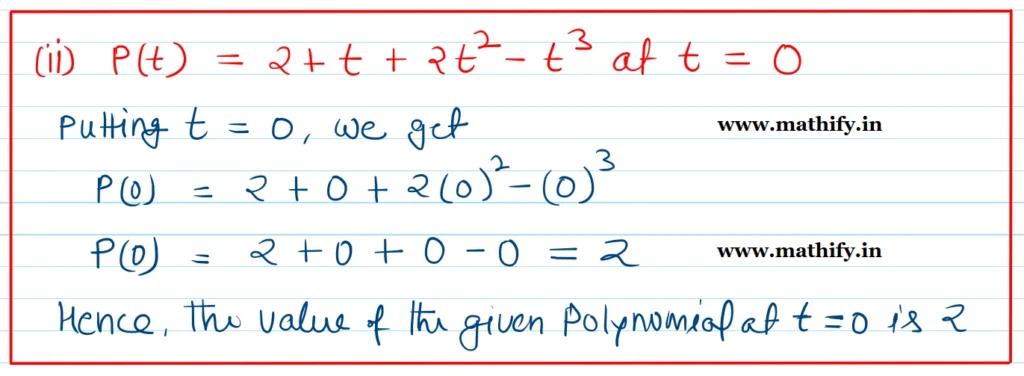 (ii) P(t) = 2 + t + 2t² - t³ at t = 0
Putting t = 0, we get
www.mathify.in
P(0) = 2 + 0 + 2(0)² - (0)³
P(0) = 2 + 0 + 0 - 0 = 2
www.mathify.in
Hence, the value of the given Polynomial at t = 0 is 2